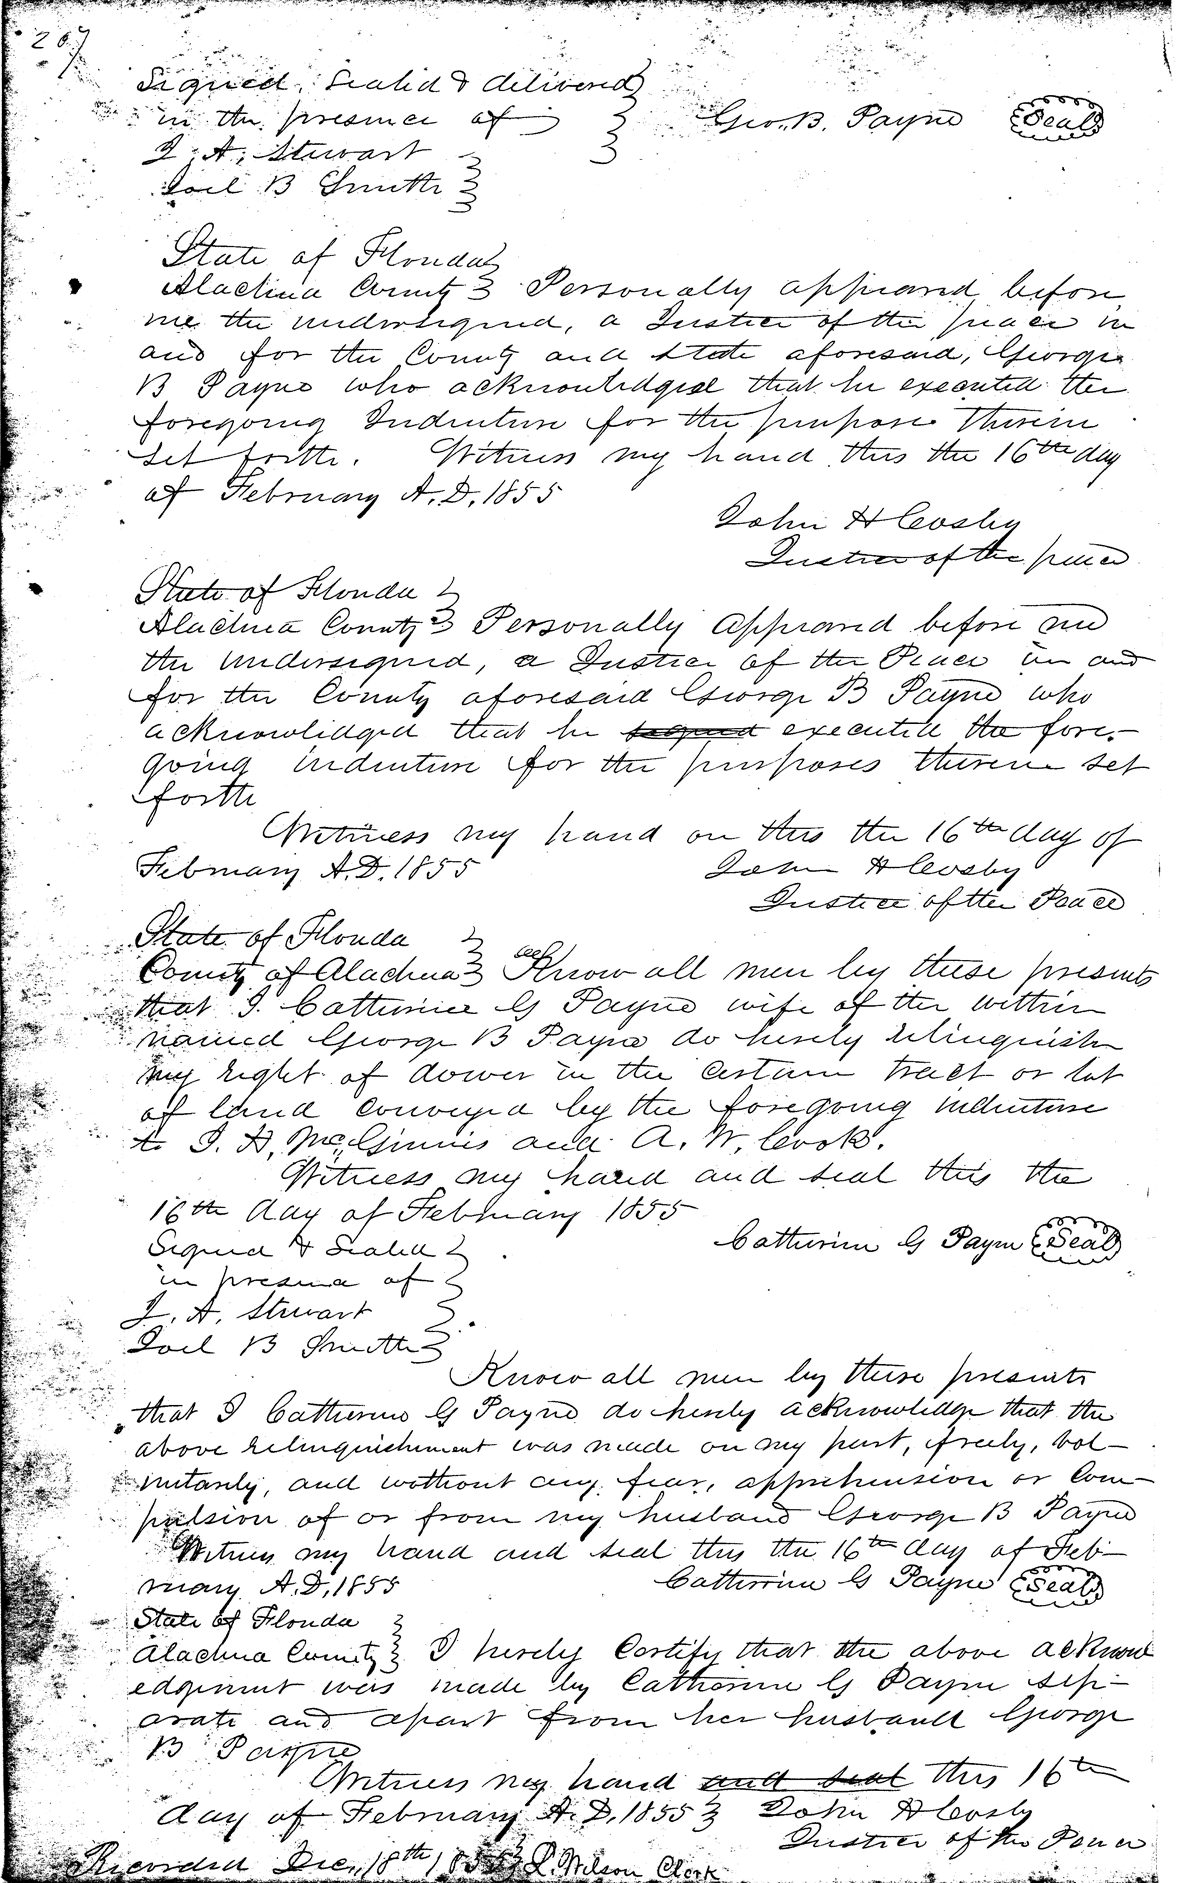 267
Signed, Sealed & delivered
in the presence of
J. A. Stewart
Joel B Smith
Geo. B. Payne Seal
State of Florida
Alachua County Personally appeared before
me the undersigned, a Justice of the peace in
and for the County and state aforesaid, George
B Payne who acknowledged that he executed the
foregoing Indenture for the purpose therein
set forth. Witness my hand this the 16th day
of February A.D. 1855
John H Cosby
Justice of the peace
State of Florida
Alachua County Personally appeared before me
the undersigned, a Justice of the Peace in and
for the County aforesaid George B Payne who
acknowledged that he signed executed the fore-
going indenture for the purposes therein set
forth
Witness my hand on this the 16th day of
February A.D. 1855
John H Cosby
Justice of the Peace
State of Florida
County of Alachua Know all men by these presents
that I Catherine G Payne wife of the within
named George B Payne do hereby relinquish
my right of dower in the certain tract or lot
of land conveyed by the foregoing indenture
to J. H. McGinnis and A. W. Cook.
Witness my hand and seal this the
16th day of February 1855
Signed & Sealed
in presence of
J. A. Stewart
Joel B Smith
Catherine G Payne Seal
Know all men by these presents
that I Catherine G Payne do hereby acknowledge that the
above relinquishment was made on my part, freely, vol-
untarily, and without any fear, apprehension or Com-
pulsion of or from my husband George B Payne
Witness my hand and seal this the 16th day of Feb-
ruary A.D. 1855 Catherine G Payne Seal
State of Florida
Alachua County I hereby Certify that the above acknowl
edgment was made by Catherine G Payne sep-
arate and apart from her husband George
B Payne
Witness my hand and seal this 16th
day of February A.D. 1855 John H Cosby
Justice of the Peace
Recorded Dec. 18th 1855 L. Wilson Clerk